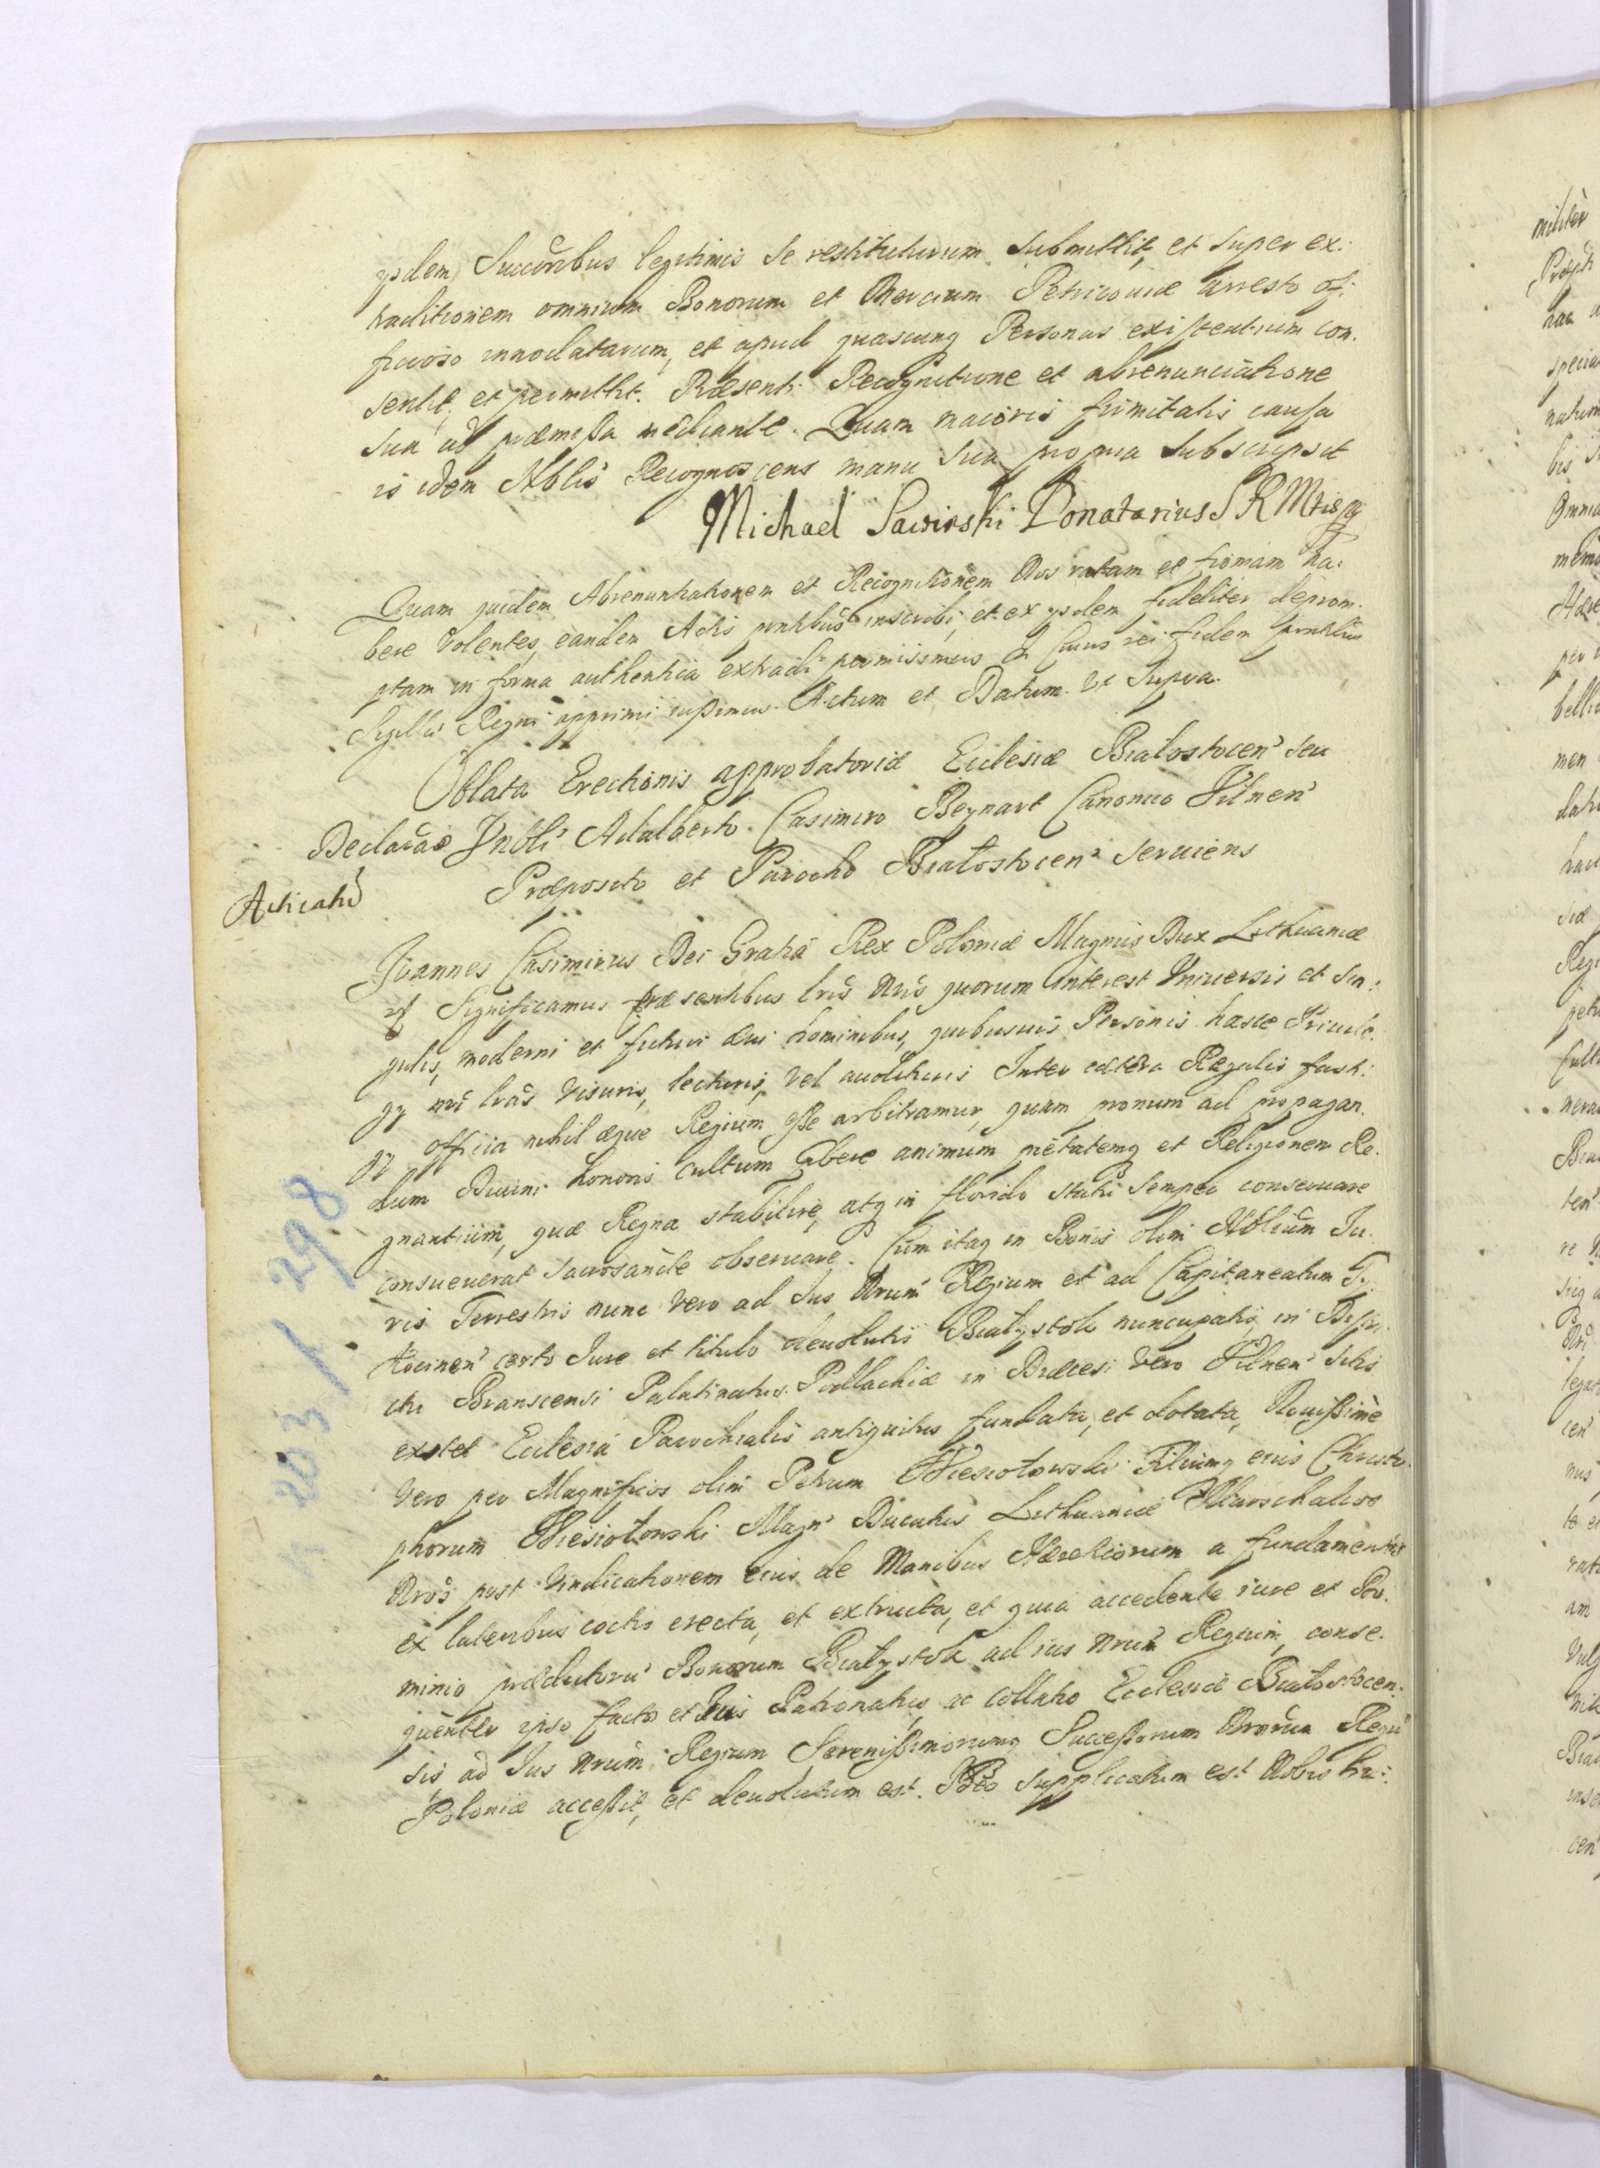 ysdem Succoribus legitimis se restituturum submittit, et super ex:
traditionem omnium Bonorum et Mercium Petricoviae arresto of:
ficioso innodatarum, et apud quascunq Personas existentium con:
sentit, et permittit. Praesenti Recognitione et abrenunciatione
sua ut praemissa mediante. Quam maioris firmitatis causa
is idem Nblis Recognoscens manu sua propria subscripsit
Michael Sawirski Donatarius S R Mtis
Quam quidem Abrenuntiationem et Recognitionem Nos ratam et firmam ha:
bere volentes, eandem Actis pntibus inscribi, et ex ysdem fideliter deprom:
ptam in forma authentica extradi permisimus In Cuius rei fidem pntibus
Sigillu Regni apprimi iussimus. Actum et Datum. Ut Supra.
Oblata Erectionis approbatoriae Ecclesiae Białostocen seu
Declarao Vnbli Adalberto Casimiro Beynart Canonico Vilnen
Praeposito et Parocho Białostocen serviens
Acticatio
Joannes Casimirus Dei Gratia Rex Poloniae Magnus Dux Lithuaniae
Significamus praesentibus lris Nris quorum interest Vniversis et sin:
gulis, moderni et futuri aevi hominibus, quibusvis Personis hasce Privile:
gy nri lras visuris, lecturis, vel audituris Inter caetera Regalis fasti:
gy officia nihil aeque Regium esse arbitramur, quam pronum ad propagan:
dum Divini honoris cultum habere animum, pietatemq et Religionem Re:
gnantium, quae Regna stabilire, atq in florido statu semper conservare
consueverat sacrosancte observare. Cum itaq in Bonis olim Nblium Ju:
ris Terrestris nunc vero ad Jus Nrum Regium et ad Capitaneatum T:
kocinen certo Jure et titulo devolutis Białystok nuncupatis, in Distri:
ctu Branscensi Palatinatus Podlachiae in Diaecesi vero Vilnen sitis
extet Ecclesia Parochialis antiquitus fundata, et dotata, Novissime
vero per Magnificos olim Petrum Wiesiołowski Filiumq eius Christo:
phorum Wiesiołowski Magni Ducatus Lithuaniae Marschalcos
Nros post vindicationem eius de Manibus Haereticorum a fundamentis
ex lateribus coctis erecta, et extructa, et quia accedente iure et Do:
minio praedictoru Bonorum Białystok ad ius Nrum Regium, conse:
quenter ipso facto et Ius Patronatus, ac Collatio Ecclesiae Białostocen:
sis ad Jus Nrum Regium Serenissimorumq Successorum Nrorum Regu
Poloniae accessit, et devolutum est. Ideo supplicatum est Nobis hu:
298